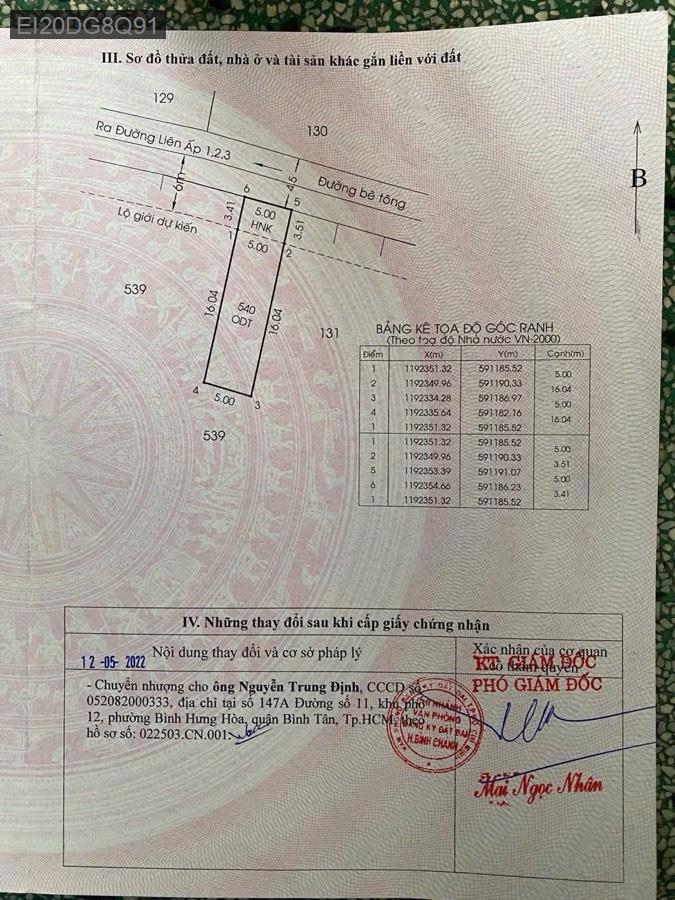 EI20DG8Q91
III. Sơ đồ thửa đất, nhà ở và tài sản khác gắn liền với đất
129
130
Ra Đường Liên Ấp 1,2,3
Đường bê tông
6m
4.5
B
Lộ giới dự kiến
6
5
3.41
5.00
HNK
3.51
1
5.00
2
539
16.04
540
ODT
16.04
131
4
5.00
3
539
BẢNG KÊ TỌA ĐỘ GÓC RANH
(Theo toạ độ Nhà nước VN-2000)
Điểm X(m) Y(m) Cạnh(m)
1 1192351.32 591185.52
5.00
2 1192349.96 591190.33
16.04
3 1192334.28 591186.97
5.00
4 1192335.64 591182.16
16.04
1 1192351.32 591185.52
1 1192351.32 591185.52
5.00
2 1192349.96 591190.33
3.51
5 1192353.39 591191.07
5.00
6 1192354.66 591186.23
3.41
1 1192351.32 591185.52
IV. Những thay đổi sau khi cấp giấy chứng nhận
12-05-2022
Nội dung thay đổi và cơ sở pháp lý
Xác nhận của cơ quan
có thẩm quyền
KT. GIÁM ĐỐC
PHÓ GIÁM ĐỐC
- Chuyển nhượng cho ông Nguyễn Trung Định, CCCD số
052082000333, địa chỉ tại số 147A Đường số 11, khu phố
12, phường Bình Hưng Hòa, quận Bình Tân, Tp.HCM; theo
hồ sơ số: 022503.CN.001
CHI NHÁNH
VĂN PHÒNG
ĐĂNG KÝ ĐẤT ĐAI
H.BÌNH CHÁNH
Mai Ngọc Nhân